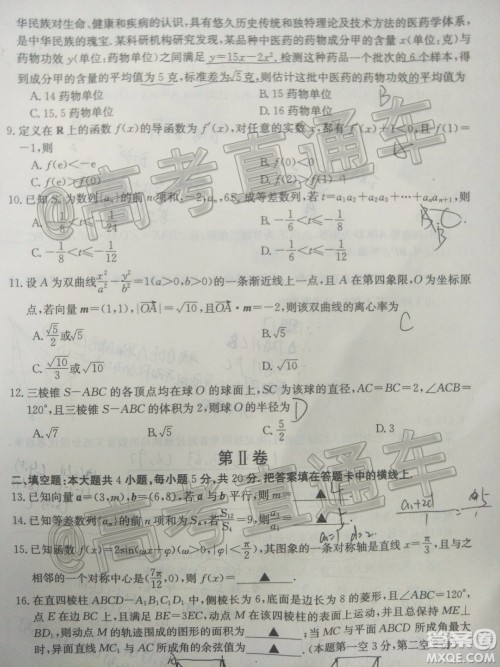 华民族对生命、健康和疾病的认识,具有悠久历史传统和独特理论及技术方法的医药学体系,
是中华民族的瑰宝.某科研机构研究发现,某品种中医药的药物成分甲的含量x(单位:克)与
药物功效y(单位:药物单位)之间满足y=15x-2x²,检测这种药品一个批次的6个样本,得
到成分甲的含量的平均值为5克,标准差为√5克,则估计这批中医药的药物功效的平均值为
A. 14药物单位 B. 15药物单位
C. 15.5药物单位 D. 16药物单位
B
9. 定义在R上的函数f(x)的导函数为f′(x),对任意的实数x,都有f′(x)+1<0,且f(1)=
-1,则
A. f(e)<-e B. f(e)
C. f(e)>f(0) D. f(2)>f(1)
10. 已知Sₙ为数列{aₙ}的前n项和,-2,a₁,6Sₙ成等差数列,若t=a₁a₂+a₂a₃+…+aₙaₙ₊₁,则
A. -1/8≤t≤-1/24 B. -1/6<t≤-1/8
C. -1/8<t≤-1/12 D. -1/6<t≤-1/12
B
11. 设A为双曲线x²/a²-y²/b²=1(a>0,b>0)的一条渐近线上一点,且A在第四象限,O为坐标原
点,若向量m=(1,1),|OA|=√10,且OA·m=-2,则该双曲线的离心率为
C
A. √5/2或√5 B. √5
C. √10/3或√10 D. √10
12. 三棱锥S-ABC的各顶点均在球O的球面上,SC为该球的直径,AC=BC=2,∠ACB=
120°,且三棱锥S-ABC的体积为2,则球O的半径为
D
A. √7 B. √5 C. 5/2 D. 3
第Ⅱ卷
二、填空题:本大题共4小题,每小题5分,共20分.把答案填在答题卡中的横线上.
13. 已知向量a=(3,m),b=(6,8),若a与b平行,则m= ▲ .
15. 已知函数f(x)=2sin(ωx+φ)(ω>0,|φ|<π/2),其图象的一条对称轴是直线x=π/3,且与之
相邻的一个对称中心是(7π/12,0),则f(x)= ▲ .
16. 在直四棱柱ABCD-A₁B₁C₁D₁中,侧棱长为6,底面是边长为8的菱形,且∠ABC=120°,
点E在边BC上,且满足BE=3EC,动点M在该四棱柱的表面上运动,并且总保持ME⊥
BD₁,则动点M的轨迹围成的图形的面积为 ▲ ;当MC与平面ABCD所成角最大
时,异面直线MC₁与AC所成角的余弦值为 ▲ .(本题第一空3分,第二空2分)
高考直通车